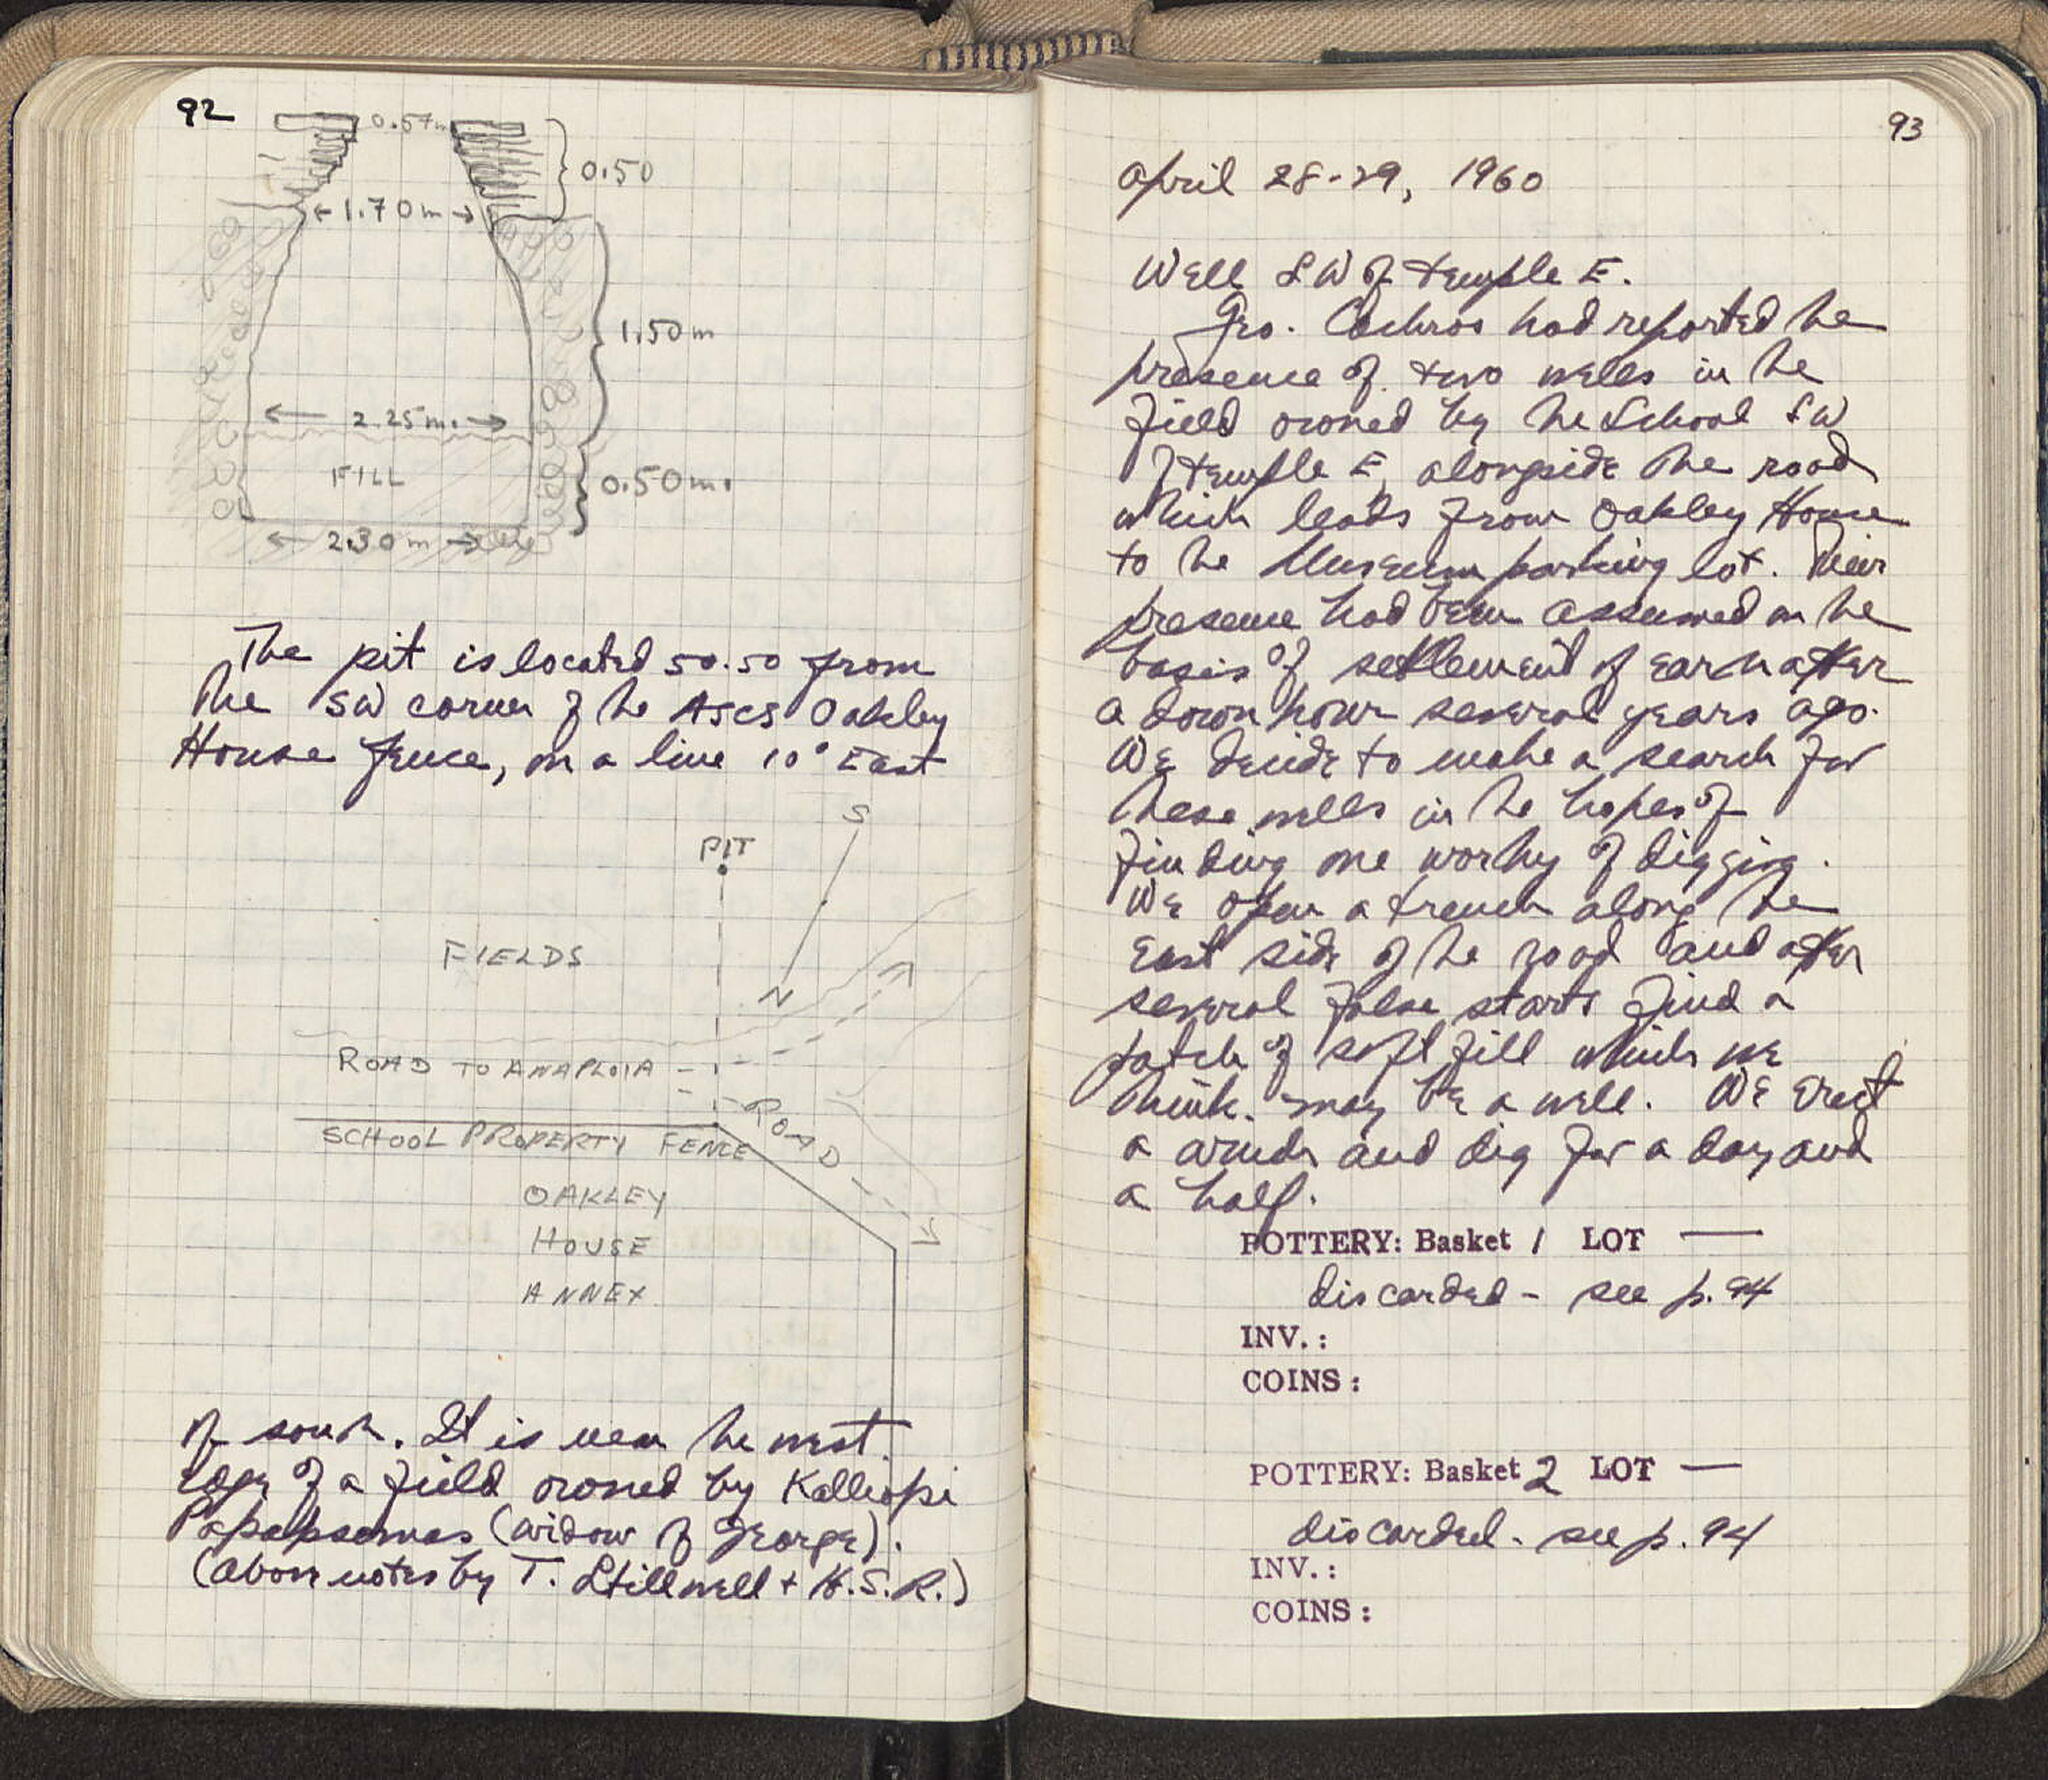 92
0.57m
0.50
1.70m
1.50m
2.25m.
FILL
0.50m.
2.30m
The pit is located 50.50 from
the SW corner of the ASCS Oakley
House fence, on a line 10° East
S
PIT
N
FIELDS
ROAD TO ANAPLOIA
ROAD
SCHOOL PROPERTY FENCE
OAKLEY
HOUSE
ANNEX
of south. It is near the west
edge of a field owned by Kalliopi
Papapsomas (widow of George).
(above notes by T. Stillwell + H.S.R.)
93
April 28-29, 1960
Well SW of Temple E.
Geo. Cachros had reported the
presence of two wells in the
field owned by the School SW
of temple E, alongside the road
which leads from Oakley House
to the Museum parking lot. Their
presence had been assumed on the
basis of settlement of earth after
a downpour several years ago.
We decide to make a search for
these wells in the hopes of
finding one worthy of digging.
We open a trench along the
East side of the road and after
several false starts find a
patch of soft fill which we
think may be a well. We erect
a winch and dig for a day and
a half.
POTTERY: Basket 1 LOT —
discarded - see p. 94
INV.:
COINS:
POTTERY: Basket 2 LOT —
discarded - see p. 94
INV.:
COINS: